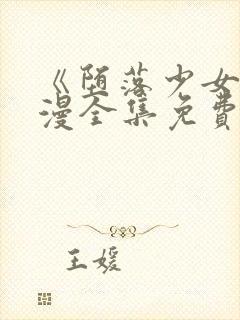 《堕落少女
漫全集免费
王媛